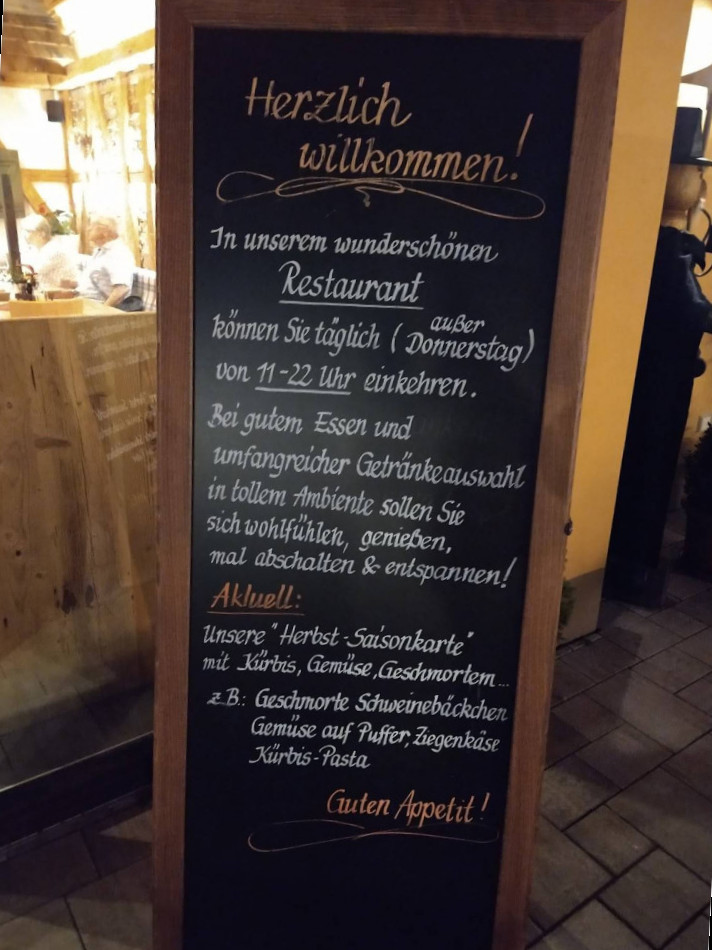 Herzlich
willkommen!
In unserem wunderschönen
Restaurant
können Sie täglich (außer Donnerstag)
von 11-22 Uhr einkehren.
Bei gutem Essen und
umfangreicher Getränkeauswahl
in tollem Ambiente sollen Sie
sich wohlfühlen, genießen,
mal abschalten & entspannen!
Aktuell:
Unsere "Herbst-Saisonkarte"
mit Kürbis, Gemüse, Geschmortem...
z.B.: Geschmorte Schweinebäckchen
Gemüse auf Puffer, Ziegenkäse
Kürbis-Pasta
Guten Appetit!